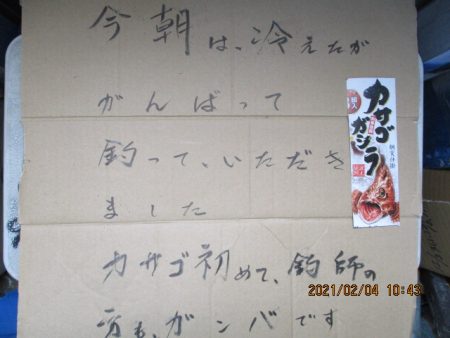 今朝は、冷えたが
がんばって
釣って、いただき
ました
カサゴ初めて、釣師の
方も、ガンバです
カサゴ
ガシラ
2021/02/04 10:43